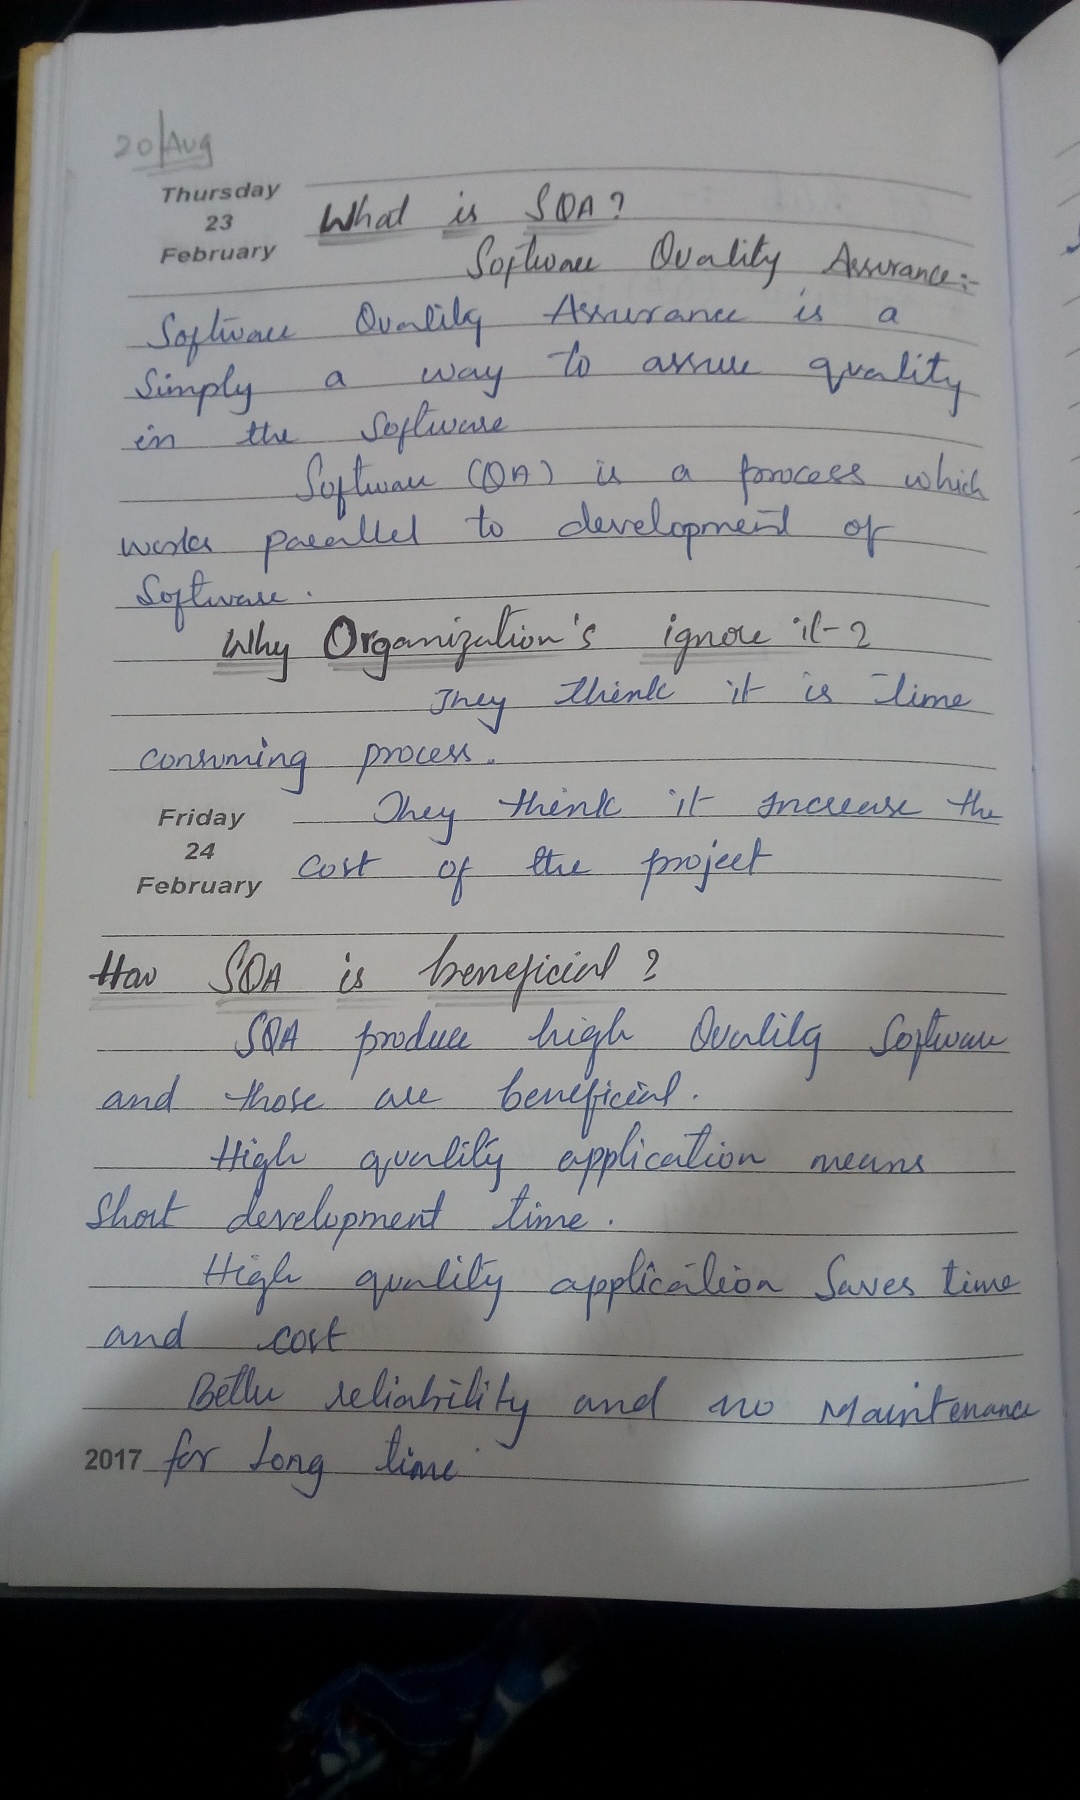 20/Aug
Thursday
23
February
What is SQA?
Software Quality Assurance:-
Software Quality Assurance is a
Simply a way to assure quality
in the Software
Software (QA) is a process which
works parallel to development of
Software.
Why Organization's ignore it?
They think it is time
consuming process.
Friday
24
February
They think it increase the
cost of the project
How SQA is beneficial?
SQA produce high Quality Software
and those are beneficial.
High quality application means
Short development time.
High quality application Saves time
and cost
Better reliability and no Maintenance
2017
for Long time